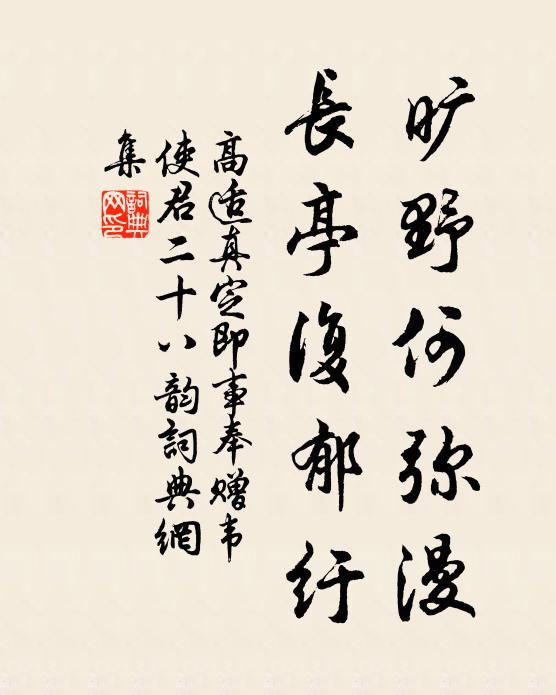 旷野何弥漫
長亭復郁纡
高适真定即事奉赠韦
使君二十八韵詞典網
集
詞典
网印